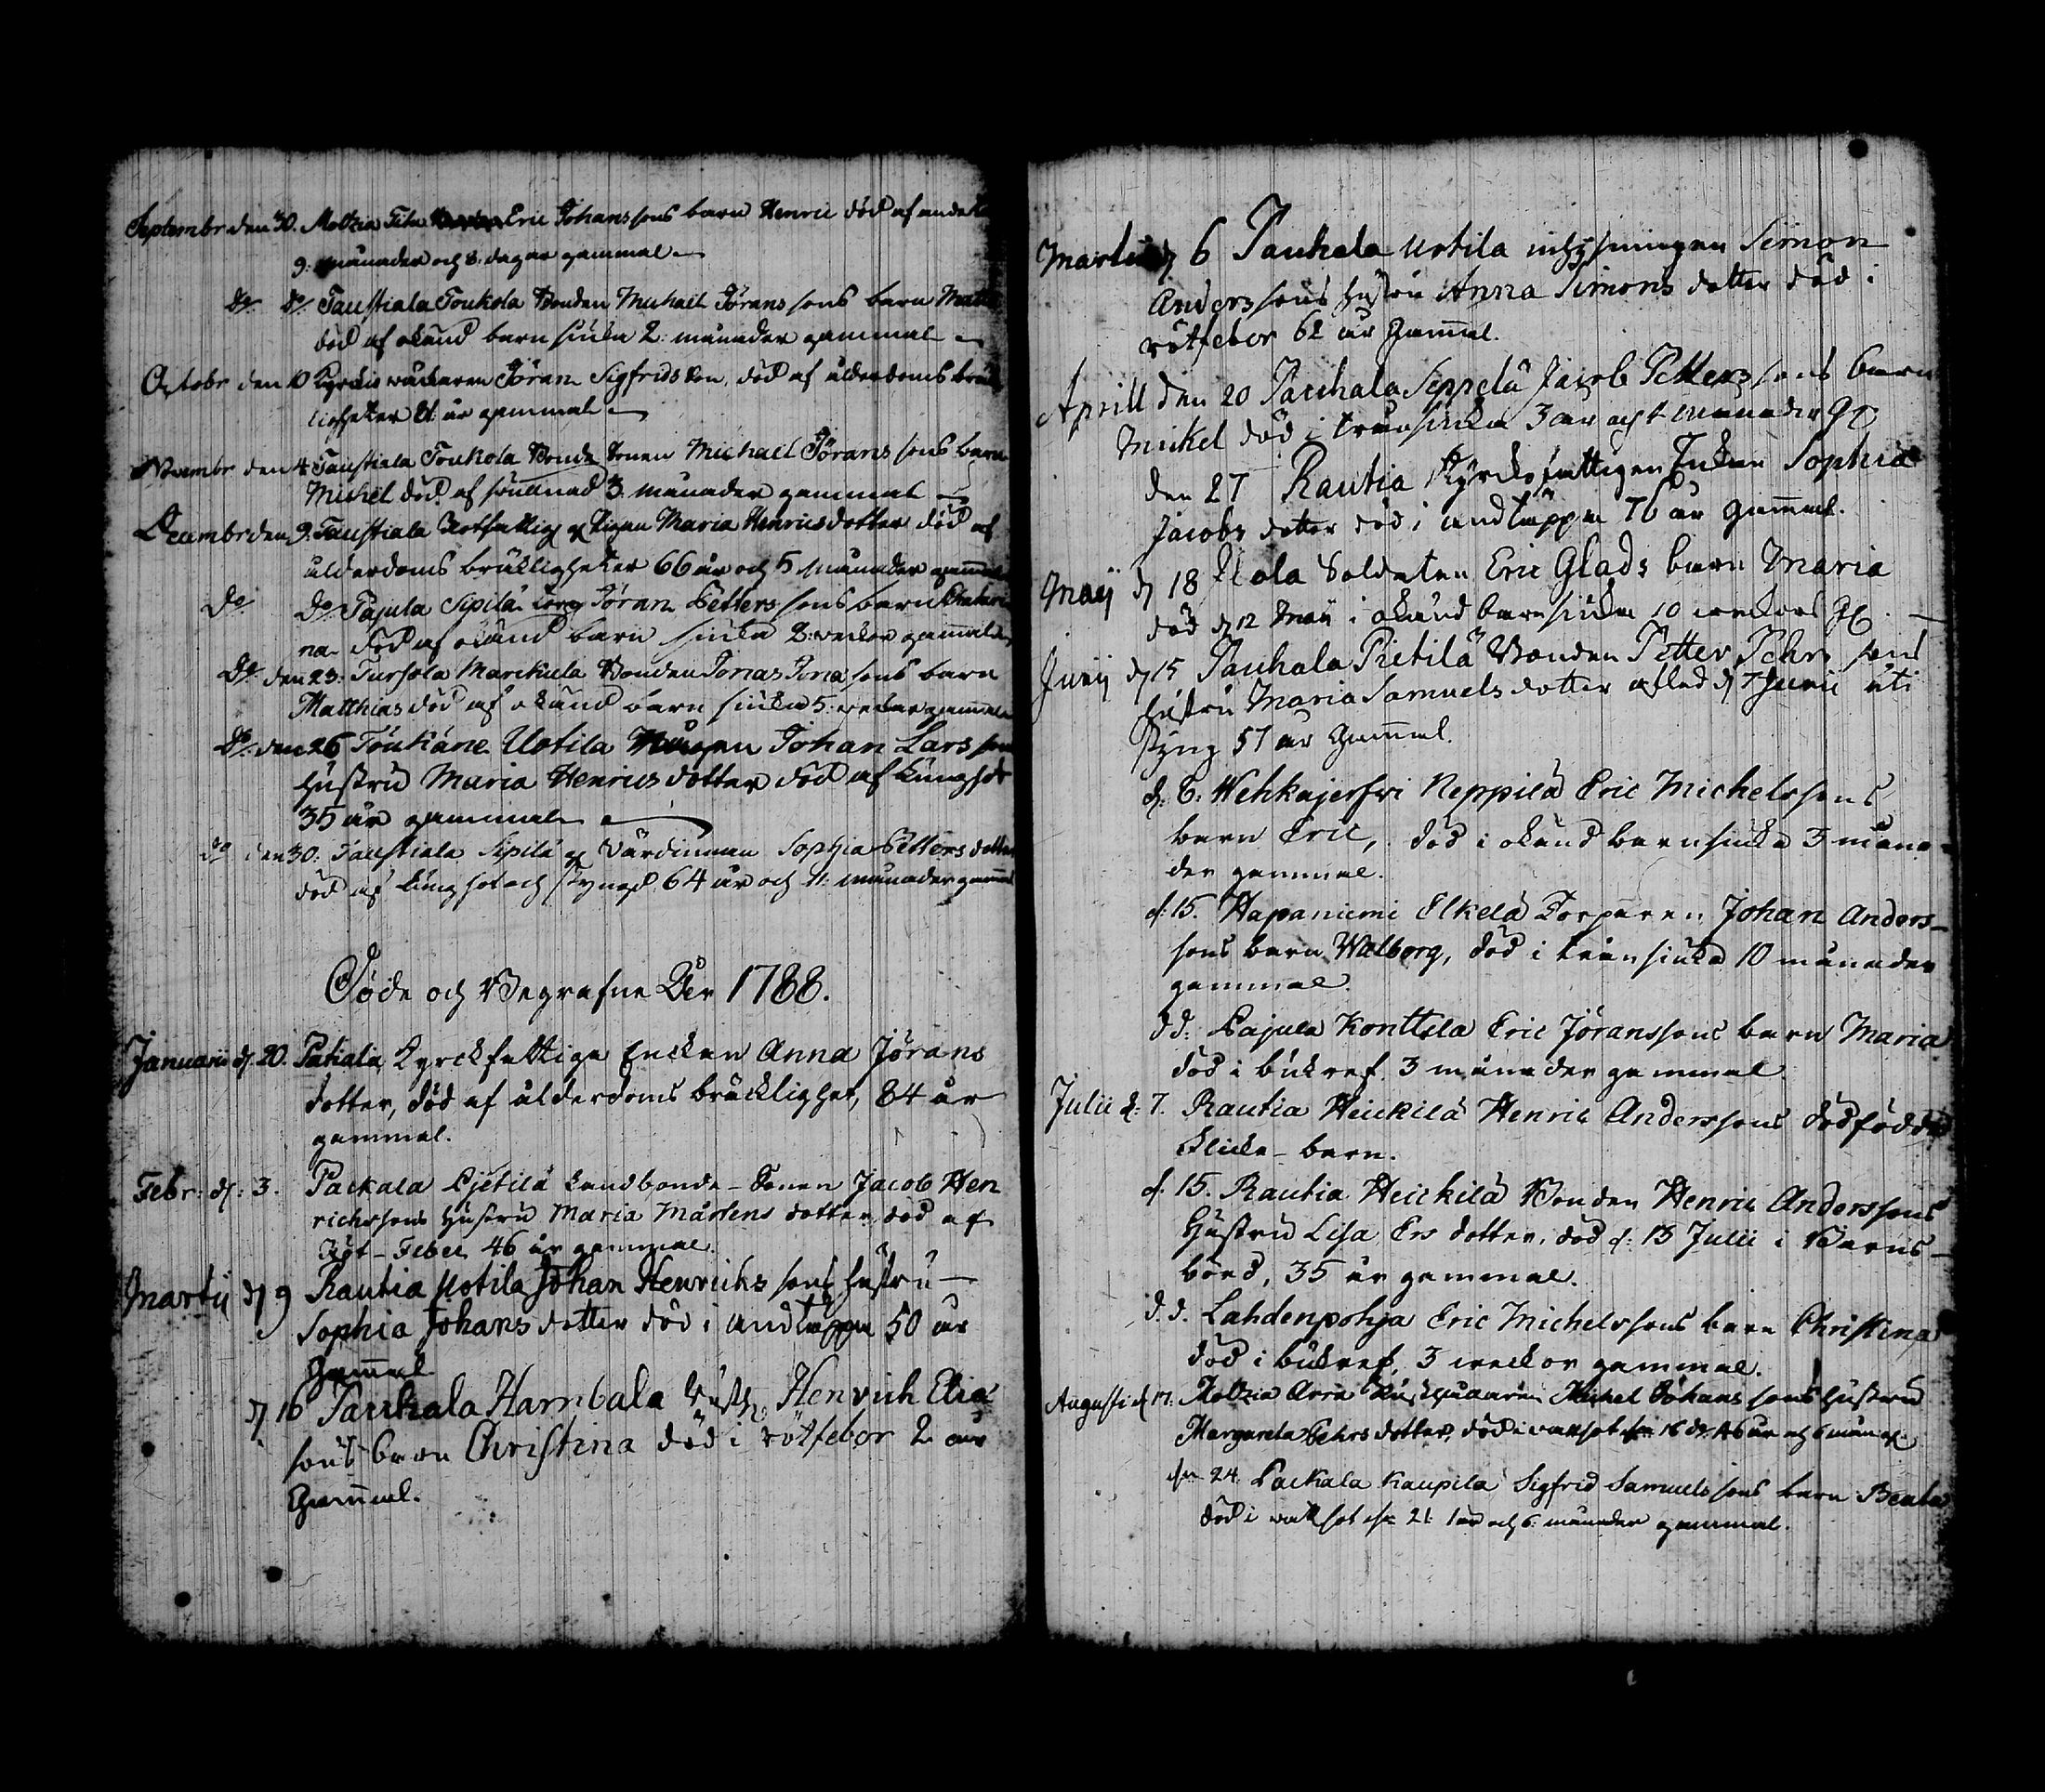 Septembr den 30. Moltzia Eric Johans sons barn Henric död af
9. månader och 8. dagar gammal
do do Taustiala Toukola Bonden Michaël Jörans sons barn
död af okänd barn siuka 2: månader gammal
Octobr den 10 Kyrcko Jöran Sigfrids son, död af ålderdoms
ligheter 81 år gammal
Novembr den 4 Taustiala Toukola Bonde Sonen Michaël Jörans sons barn
Michél död af 3. månader gammal
Decembr den 9. Taustiala Pigan Maria Henricsdotter död af
ålderdoms bräkligheter 66 år och 5 månader gammal
do do Pajula Sipilä Jöran Petters sons barn Chatari
na död af okänd barn siuka 2: veckor gammal
do den 23. Tursola Marckula Bonden Jonas Jona sons barn
Matthias död af okänd barn siuka 5: veckor gammal
do den 26 Uotila Johan Lars son
Hustru Maria Henricsdotter död af Lungsot
35 år gammal
do den 30: Taustiala Sipilä Värdinnan Sophia Petters dotter
död af lungsot och styngd 64 år och 11: månader gammal
Döde och Begrafne År 1788.
Januarii d. 20. Kyrckfattiga Enckan Anna Jörans
dotter, död af ålderdoms bräcklighet, 84 år
gammal.
Febr: d: 3. Packala Pjetilä Landbonde-Sonen Jacob Hen
richssons Hustru Maria Mårtens dotter, död af
Röt-Feber 46 år gammal.
Martij d 9 Rautia Uotila Johan Henrichs sons Hustru
Sophia Johans dotter död i andtäppa 50 år
Gam̅al
d 16 Pauhala Hambala Henrich Elia
sons barn Christina död i rötfeber 2 år
Gam̅al.
Martii d 6 Pauhala Uotila inhysningen Simon
Anders sons hustru Anna Simons dotter död i
rötfeber 62 år Gam̅al.
Aprill den 20 Pauhala Seppelä Jacob Petters sons barn
Mickel död i 3 år och 4 månader
den 27 Rautia Kyrckofattigen Enkan Sophia
Jacobs dotter död i andtäppa 76 år Gam̅al.
Maij d 18 Soldaten Eric Glads barn Maria
död d 12 Maij i okänd barnsiuka 10 weckors
Junij d 15 Pauhala Pietilä Bonden Petter Pehrs sons
hustru Maria Samuelsdotter afled d 7 Junii uti
Styng 57 år Gam̅al.
d. 6. Wehkajerfwi Reppilä Eric Michelssons
barn Eric, död i okänd barnsiuka 3 måna-
der gammal.
d: 15. Hapaniemi Elkelä Torparen Johan Anders-
sons barn Walborg, död i 10 månader
gammal.
d d: Pajula Konttila Eric Jöranssons barn Maria
död i bukref. 3 månader gammal.
Julii d: 7. Rautia Heickilä Henric Anderssons dödfödde
Flicke-barn.
d. 15. Rautia Heickilä Bonden Henric Anderssons
Hustru Lisa Ers dotter, död d: 13 Julii i Barns-
börd, 35 år gammal.
d. d. Lahdenpohja Eric Michelssons barn Christina
död i bukref, 3 weckor gammal.
Augusti d 17. Moltzia Arra Michel Johans sons Hustru
Margareta Pehrs dotter, död i wattsot
den 24. Packala Kaupila Sigfrid Samuels sons barn Beata
död i wattsot den 21: 1 år och 6: månader gammal.